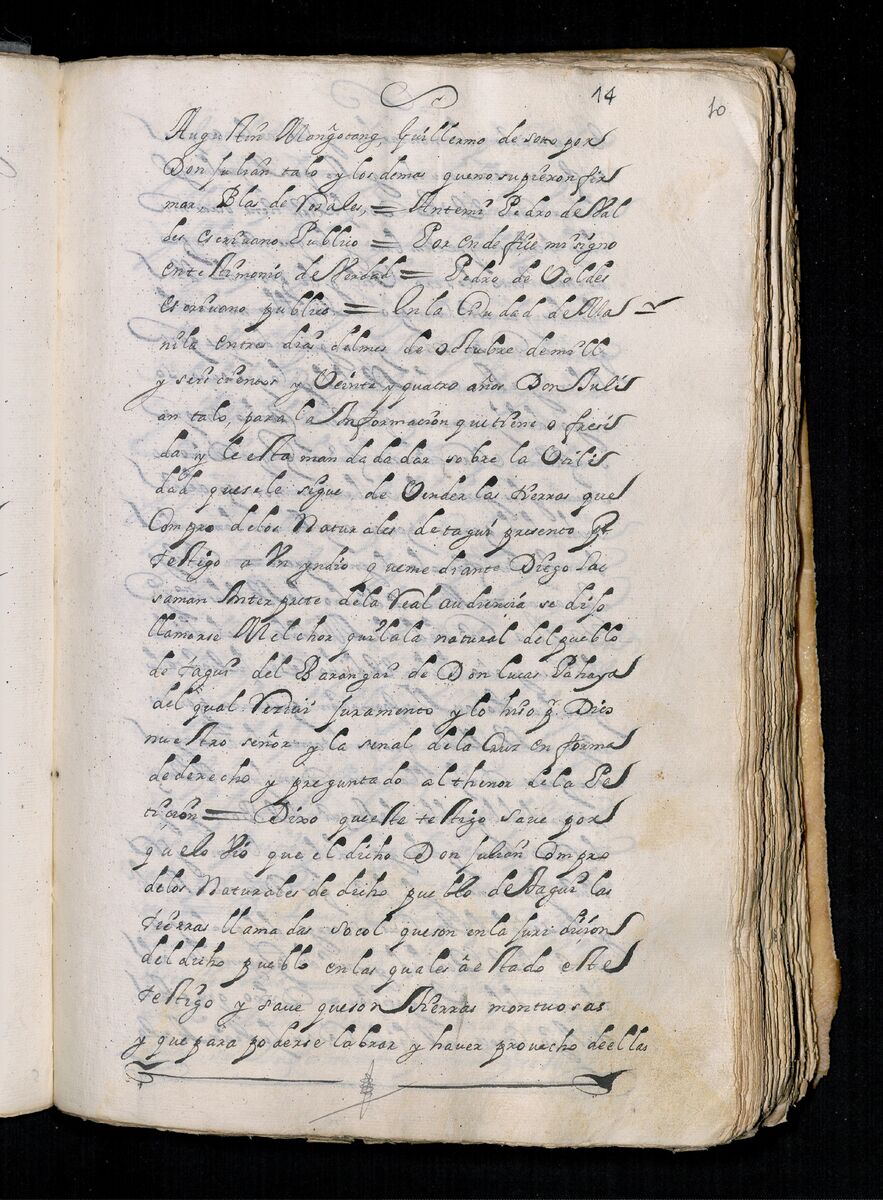 14
10
Augustin Mongotong, Guillermo de soto por
Don Julian talo y los demas que no supieron fir
mar, Blas de Rosales, = Antemi Pedro de Val
des escriuano Publico = Por ende fice mi signo
entestimonio de Verdad = Pedro de Valdes
escriuano publico = En la Ciudad de Ma
nila entres dias del mes de octubre de mill
y seiscientos y Veinte y quatro años Don Juli
an talo, para la Informacion que tiene ofresi
da y le esta mandada dar sobre la Vtili
dad que se le sigue de Vender las tierras que
Compro de los Naturales de tagui presento Por
testigo a Vn yndio que mediante Diego
saman Interprete de la Real audiencia se dijo
llamarse Melchor quilala natural del pueblo
de tagui del Barangai de Don Lucas Pahaya
del qual Reciui Juramento y lo hiso pr. Dios
nuestro señor y la señal de la Cruz en forma
de derecho y preguntado al thenor de la Pe
ticion = Dixo que este testigo saue por
que lo Vio que el dicho Don Julian Compro
de los Naturales de dicho pueblo de tagui las
tierras llamadas socol que son en la Juridicion
del dicho pueblo en las quales a estado este
testigo y saue que son tierras montuosas
y que para poderse labrar y haver prouecho deellas